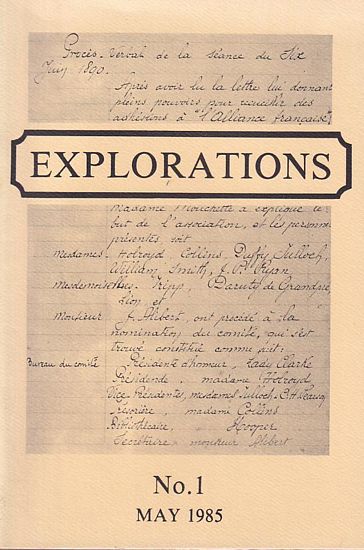 Procès-Verbal de la séance du Six
Juin 1890.
Après avoir lu la lettre lui donnant
pleins pouvoirs pour recueillir des
adhésions à "l'Alliance française"
EXPLORATIONS
Madame Mouchette a expliqué le
but de l'association, et les personnes
présentes soit
Mesdames Holroyd, Collins, Duffy, Tulloch,
William Smith, J. P. Ryan,
Mesdemoiselles Tripp, Daruty de Grandpré,
Lion et
Monsieur F. Hibert, ont procédé à la
nomination du comité, qui s'est
trouvé constitué comme suit:
Bureau du comité Présidente d'honneur, Lady Clarke
Présidente, madame Holroyd
Vice Présidentes, mesdames Tulloch,
Trésorière, madame Collins
Bibliothécaire, " Hooper
Secrétaire, monsieur Hibert
No.1
MAY 1985